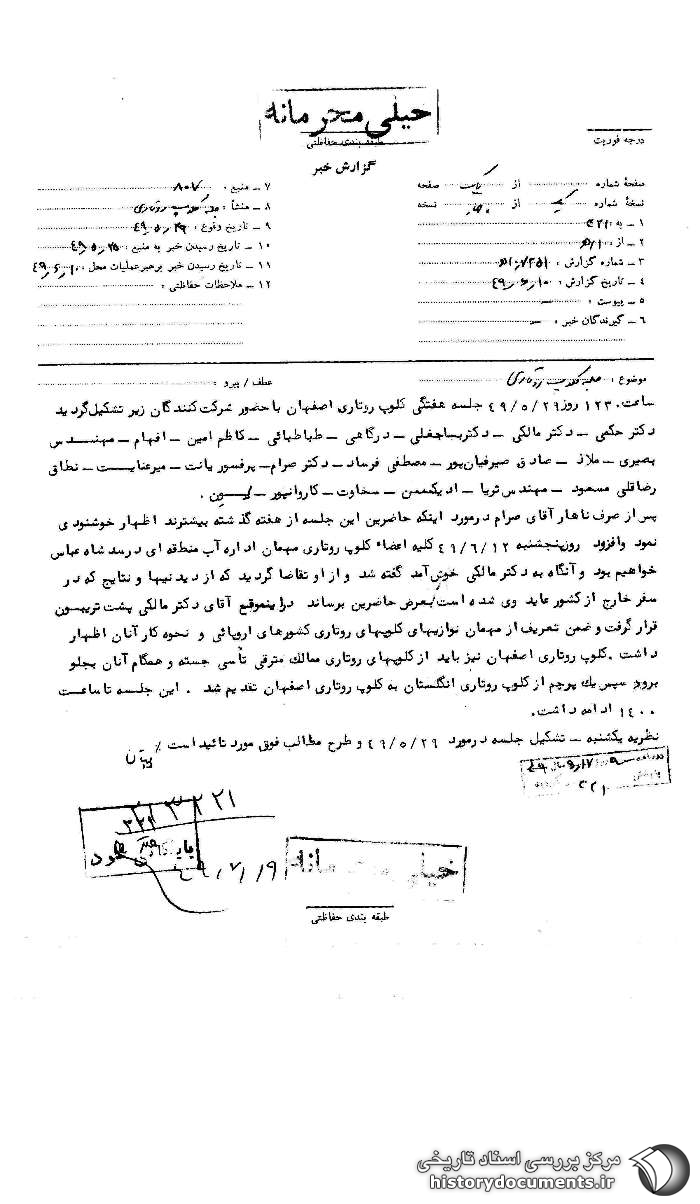 خیلی محرمانه
طبقه بندی حفاظتی
درجه فوریت
گزارش خبر
صفحهٔ شماره از صفحه
نسخهٔ شماره یک از نسخه
۱ – به : ۳۲۱
۲ – از :
۳ – شماره گزارش :
۴ – تاریخ گزارش : ۴۹٫۶٫۱۰
۵ – پیوست : –
۶ – گیرندگان خبر : –
۷ – منبع : ۸۰۷
۸ – منشأ : جلسه کلوپ روتاری
۹ – تاریخ وقوع : ۴۹٫۵٫۲۹
۱۰ – تاریخ رسیدن خبر به منبع : ۴۹٫۵٫
۱۱ – تاریخ رسیدن خبر برهبر عملیات محل : ۴۹٫۶٫۱۰
۱۲ – ملاحظات حفاظتی :
موضوع : جلسه کلوپ روتاری
عطف / پیرو :
ساعت ۱۲۳۰ روز ۴۹/۵/۲۹ جلسه هفتگی کلوپ روتاری اصفهان با حضور شرکت کنندگان زیر تشکیل گردید
دکتر حکمی – دکتر مالکی – دکتر بساجعلی – درگاهی – طباطبائی – کاظم امین – افهام – مهندس
بصیری – ملاذ – صادق صیرفیان پور – مصطفی فرساد – دکتر صرام – پرفسور یانت – میرعنایت – نطاقی
رضاقلی مسعود – مهندس ثریا – ادیکسمن – سخاوت – کاروانپور –
پس از صرف ناهار آقای صرام درمورد اینکه حاضرین این جلسه از هفته گذشته بیشترند اظهار خوشنودی
نمود وافزود روز پنجشنبه ۴۹/۶/۱۲ کلیه اعضاء کلوپ روتاری مهمان اداره آب منطقه ای درسد شاه عباس
خواهیم بود و آنگاه به دکتر مالکی خوش آمد گفته شد و از او تقاضا گردید که از دیدنیها و نتایج که در
سفر خارج از کشور عاید وی شده است بعرض حاضرین برساند دراینموقع آقای دکتر مالکی پشت تریبون
قرار گرفت و ضمن تعریف از مهمان نوازیهای کلوپهای روتاری کشورهای اروپائی و نحوه کار آنان اظهار
داشت . کلوپ روتاری اصفهان نیز باید از کلوپهای روتاری ممالک مترقی تأسی جسته و همگام آنان بجلو
برود سپس یک پرچم از کلوپ روتاری انگستان به کلوپ روتاری اصفهان تقدیم شد . این جلسه تا ساعت
۱۴۰۰ ادامه داشت .
نظریه یکشنبه – تشکیل جلسه درمورد ۴۹/۵/۲۹ و طرح مطالب فوق مورد تائید است /
۳۲۱
خیلی محرمانه
۴۹/۷/۱۹
طبقه بندی حفاظتی
مرکز بررسی اسناد تاریخی
historydocuments.ir